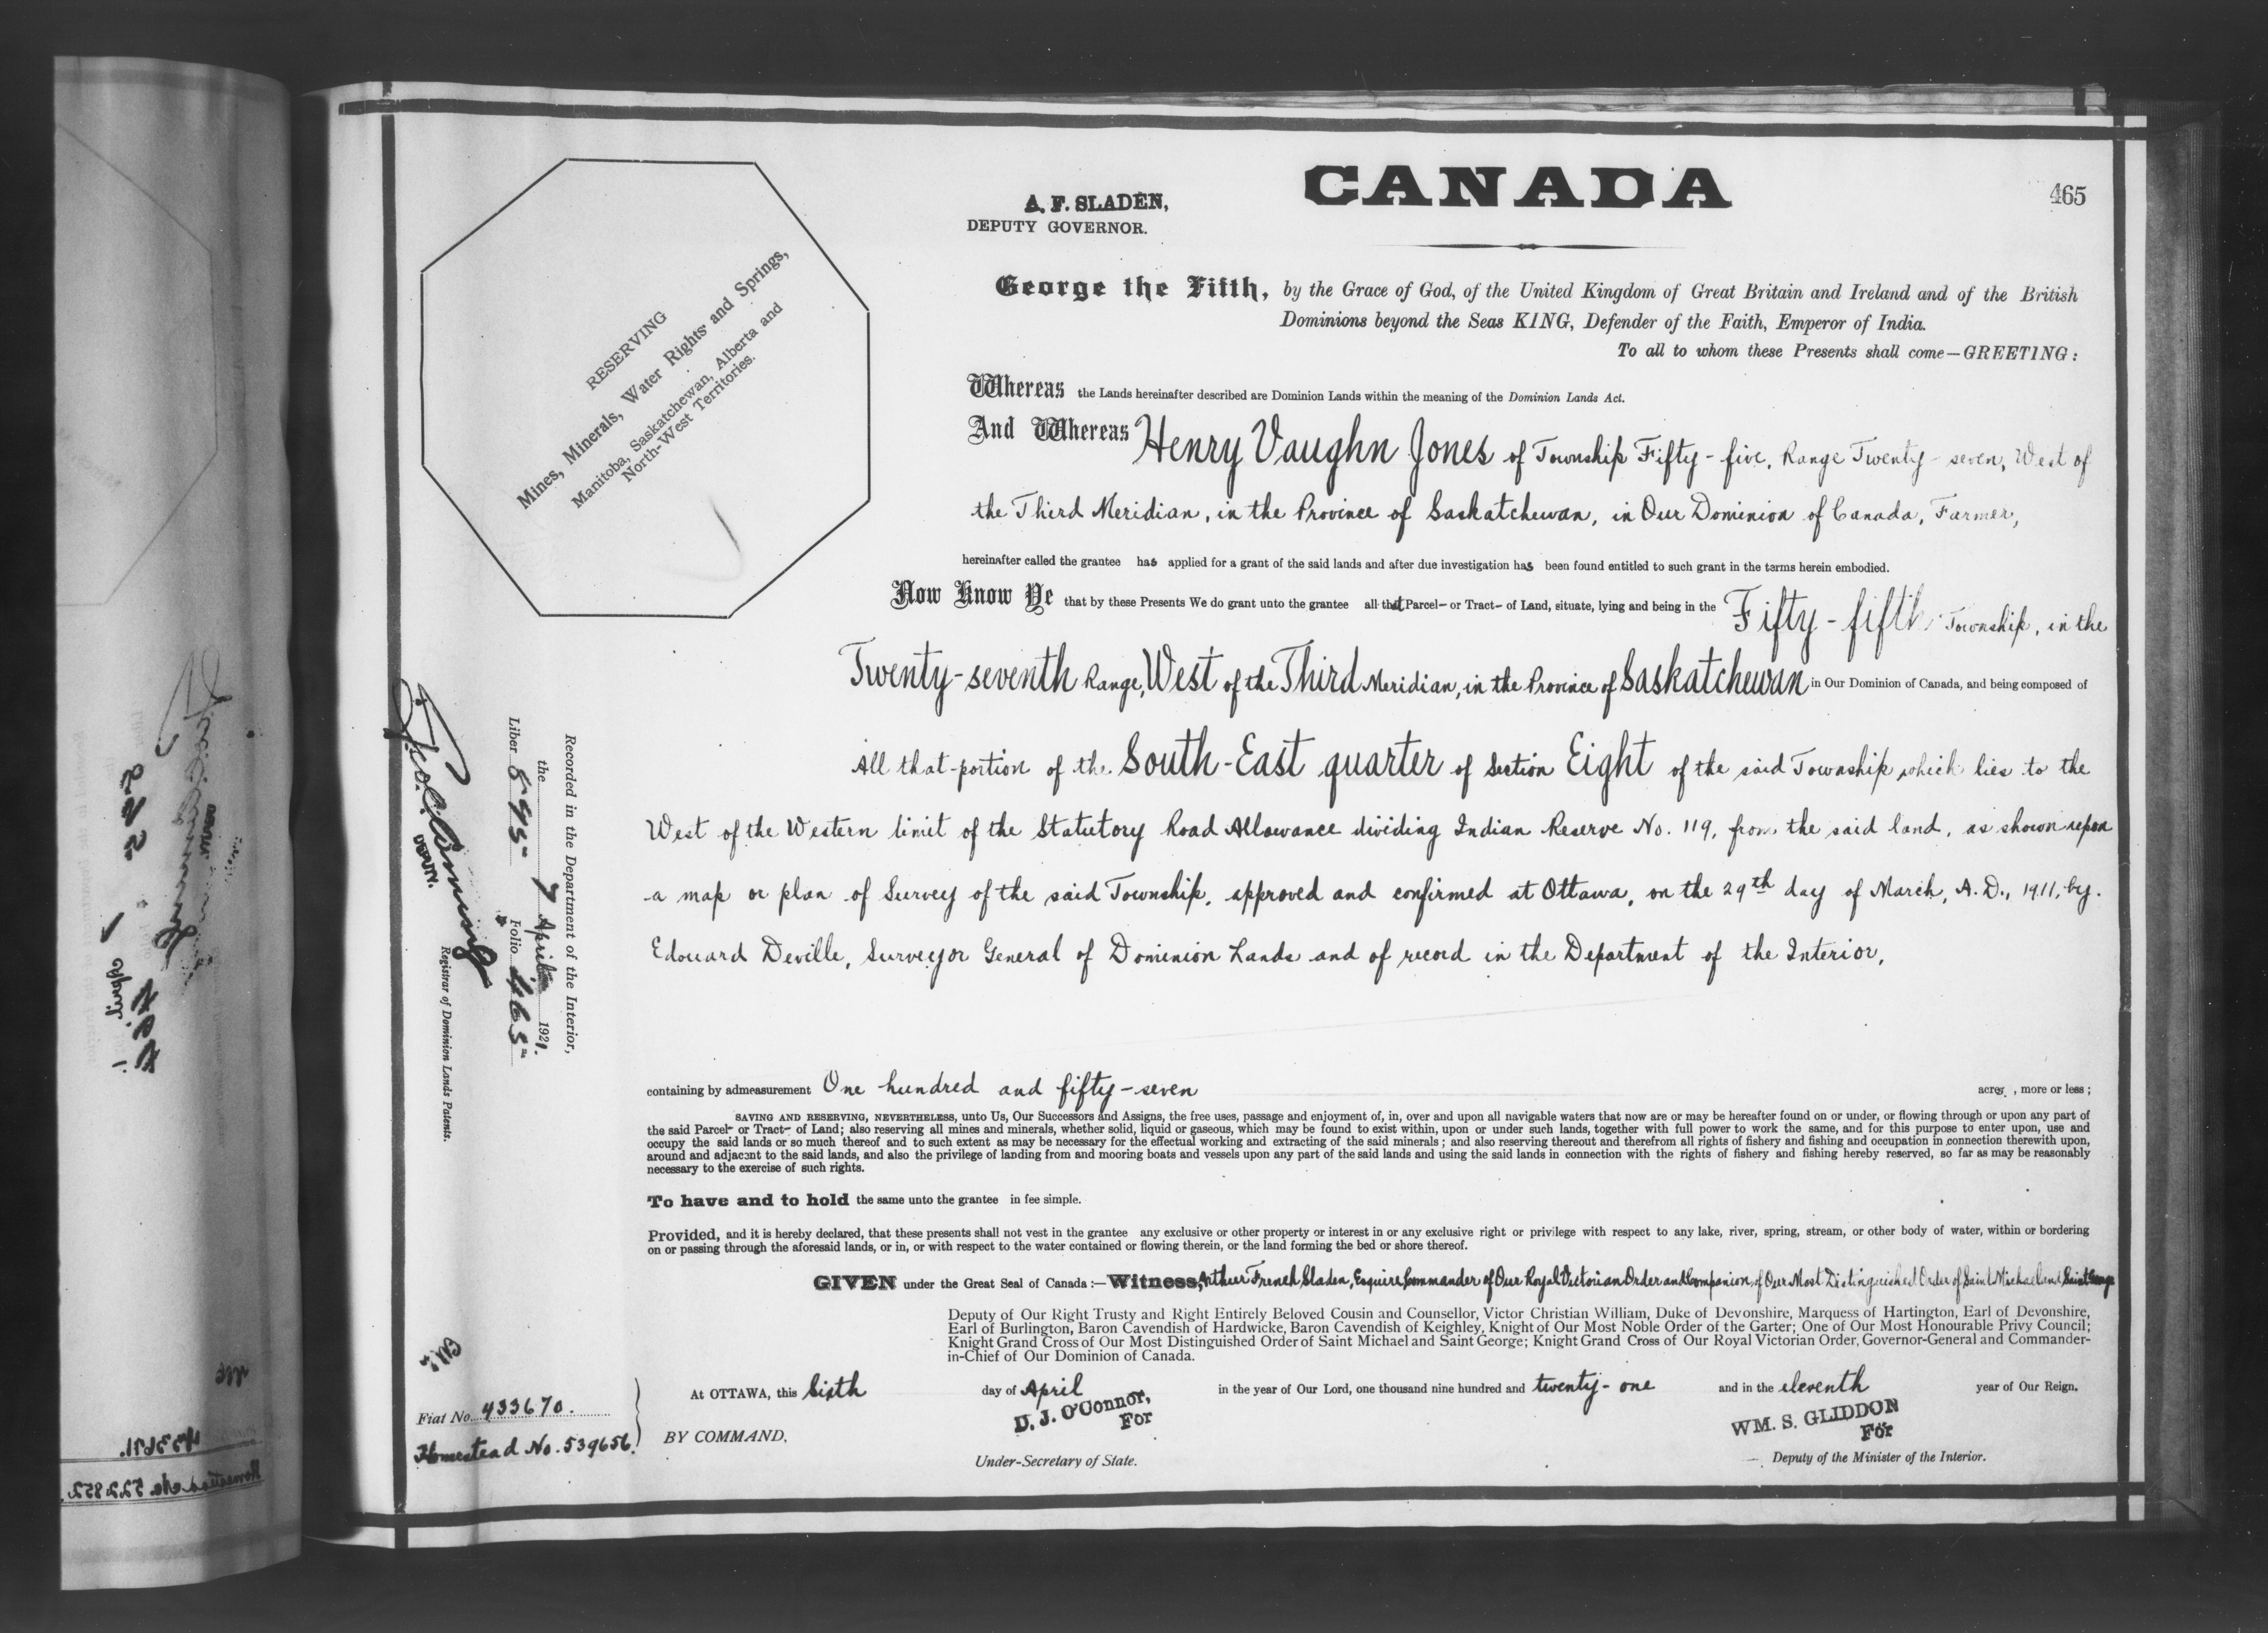 CANADA
465
A. F. SLADEN,
DEPUTY GOVERNOR.
RESERVING
Mines, Minerals, Water Rights and Springs,
Manitoba, Saskatchewan, Alberta and
North-West Territories.
George the Fifth, by the Grace of God, of the United Kingdom of Great Britain and Ireland and of the British
Dominions beyond the Seas KING, Defender of the Faith, Emperor of India.
To all to whom these Presents shall come—GREETING:
Whereas the Lands hereinafter described are Dominion Lands within the meaning of the Dominion Lands Act.
And Whereas Henry Vaughn Jones of Township Fifty-five, Range Twenty-seven, West of
the Third Meridian, in the Province of Saskatchewan, in Our Dominion of Canada, Farmer,
hereinafter called the grantee has applied for a grant of the said lands and after due investigation has been found entitled to such grant in the terms herein embodied.
Now Know Ye that by these Presents We do grant unto the grantee all that Parcel- or Tract- of Land, situate, lying and being in the Fifty-fifth Township, in the
Twenty-seventh Range, West of the Third Meridian, in the Province of Saskatchewan in Our Dominion of Canada, and being composed of
All that portion of the South-East quarter of Section Eight of the said Township which lies to the
West of the Western limit of the Statutory Road Allowance dividing Indian Reserve No. 119, from the said land, as shown upon
a map or plan of Survey of the said Township, approved and confirmed at Ottawa, on the 29th day of March, A.D., 1911, by
Edouard Deville, Surveyor General of Dominion Lands and of record in the Department of the Interior,
containing by admeasurement One hundred and fifty-seven acres, more or less;
SAVING AND RESERVING, NEVERTHELESS, unto Us, Our Successors and Assigns, the free uses, passage and enjoyment of, in, over and upon all navigable waters that now are or may be hereafter found on or under, or flowing through or upon any part of
the said Parcel- or Tract- of Land; also reserving all mines and minerals, whether solid, liquid or gaseous, which may be found to exist within, upon or under such lands, together with full power to work the same, and for this purpose to enter upon, use and
occupy the said lands or so much thereof and to such extent as may be necessary for the effectual working and extracting of the said minerals; and also reserving thereout and therefrom all rights of fishery and fishing and occupation in connection therewith upon,
around and adjacent to the said lands, and also the privilege of landing from and mooring boats and vessels upon any part of the said lands and using the said lands in connection with the rights of fishery and fishing hereby reserved, so far as may be reasonably
necessary to the exercise of such rights.
To have and to hold the same unto the grantee in fee simple.
Provided, and it is hereby declared, that these presents shall not vest in the grantee any exclusive or other property or interest in or any exclusive right or privilege with respect to any lake, river, spring, stream, or other body of water, within or bordering
on or passing through the aforesaid lands, or in, or with respect to the water contained or flowing therein, or the land forming the bed or shore thereof.
GIVEN under the Great Seal of Canada:—Witness, Arthur French Sladen, Esquire Commander of Our Royal Victorian Order and Companion of Our Most Distinguished Order of Saint Michael and Saint George
Deputy of Our Right Trusty and Right Entirely Beloved Cousin and Counsellor, Victor Christian William, Duke of Devonshire, Marquess of Hartington, Earl of Devonshire,
Earl of Burlington, Baron Cavendish of Hardwicke, Baron Cavendish of Keighley, Knight of Our Most Noble Order of the Garter; One of Our Most Honourable Privy Council;
Knight Grand Cross of Our Most Distinguished Order of Saint Michael and Saint George; Knight Grand Cross of Our Royal Victorian Order, Governor-General and Commander-
in-Chief of Our Dominion of Canada.
At OTTAWA, this Sixth day of April in the year of Our Lord, one thousand nine hundred and twenty-one and in the eleventh year of Our Reign.
BY COMMAND,
D. J. O'Connor,
For
Under-Secretary of State.
WM. S. GLIDDON
For
Deputy of the Minister of the Interior.
Recorded in the Department of the Interior,
the 7 April 1921.
Liber 895 Folio 465
DEPUTY.
Registrar of Dominion Lands Patents.
Fiat No. 433670.
Homestead No. 539656.
433671.
Homestead No. 522852.